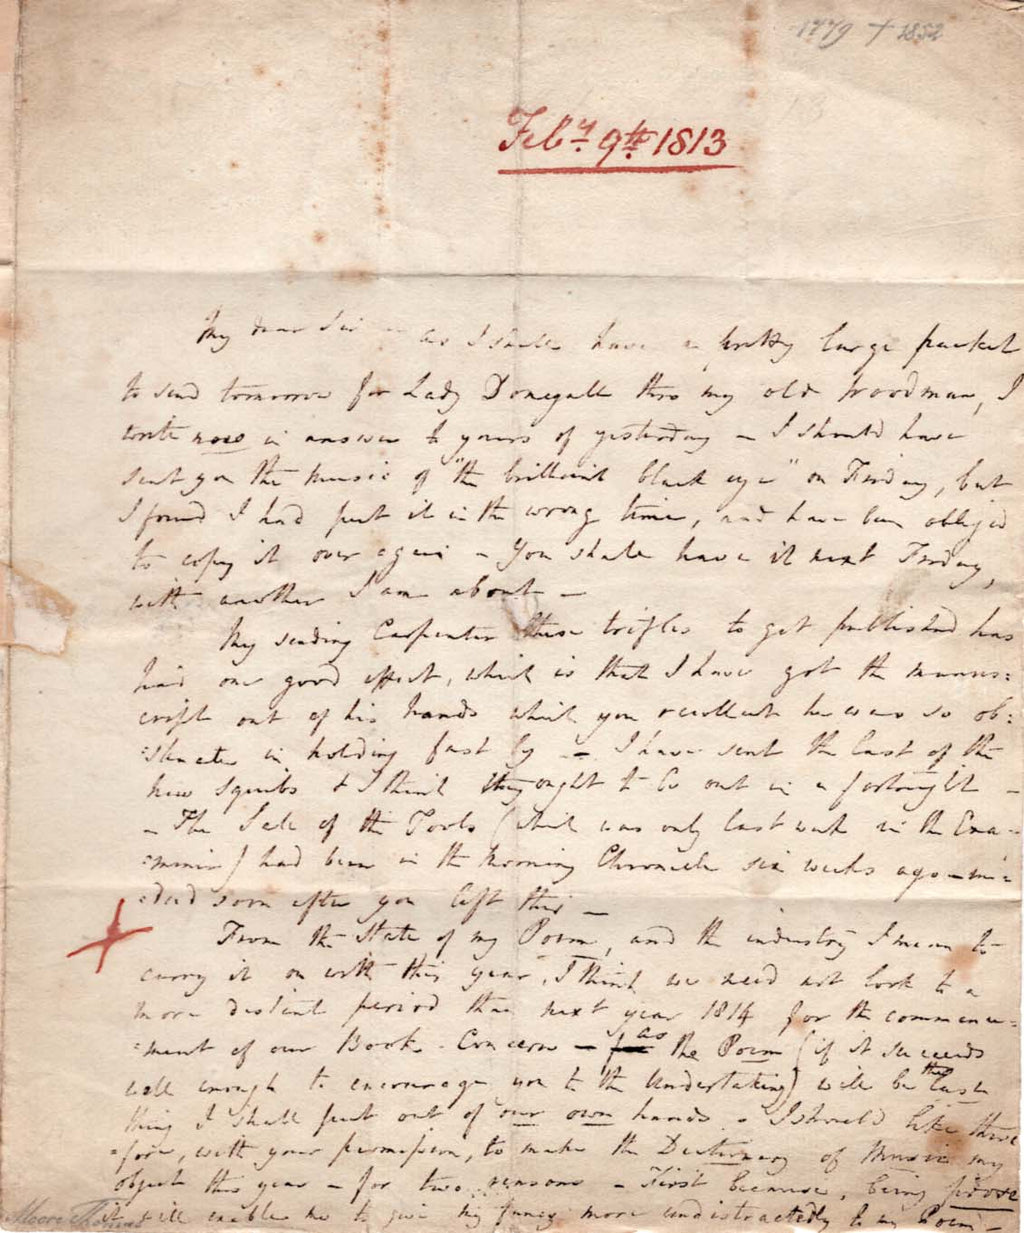 1779 + 1852
Feby. 9th. 1813
My dear Sir – as I shall have a pretty large packet
to send tomorrow for Lady Donegall thro my old Woodman, I
write now in answer to yours of yesterday – I should have
sent you the music of "the brilliant black eye" on Friday, but
I found I had put it in the wrong time, and have been obliged
to copy it over again – You shall have it next Friday,
with another I am about –
My sending Carpenter these trifles to get published has
had one good effect, which is that I have got the manus:
cript out of his hands which you recollect he was so ob:
:stinate in holding fast by – I have sent the last of the
new Squibs & I think they ought to be out in a fortnight –
– The Sale of the Tools (which was only last week in the Exa-
:miner) had been in the Morning Chronicle six weeks ago – in:
:deed soon after you left this –
From the State of my Poem, and the industry I mean to
carry it on with this year, I think we need not look to a
more distant period than next year 1814 for the commence:
:ment of our Book-Concern – as the Poem (if it succeeds
well enough to encourage you to the Undertaking) will be the last
thing I shall put out of our own hands – I should like there
:fore, with your permission, to make the Dictionary of Music my
object this year – for two reasons – First because, being prose
it will enable me to give my fancy more undistractedly to my Poem –
Moore Thomas